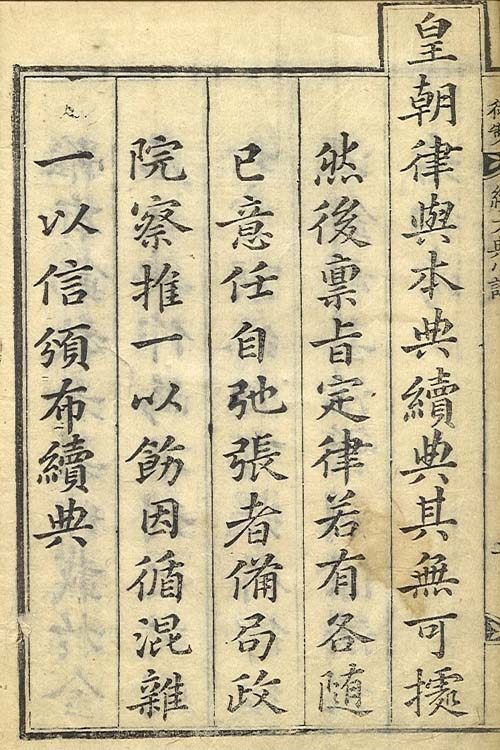 皇朝律與本典續典其無可據
然後禀旨定律若有各随
已意任自弛張者備局政
院察推一以飭因循混雜
一以信頒布續典